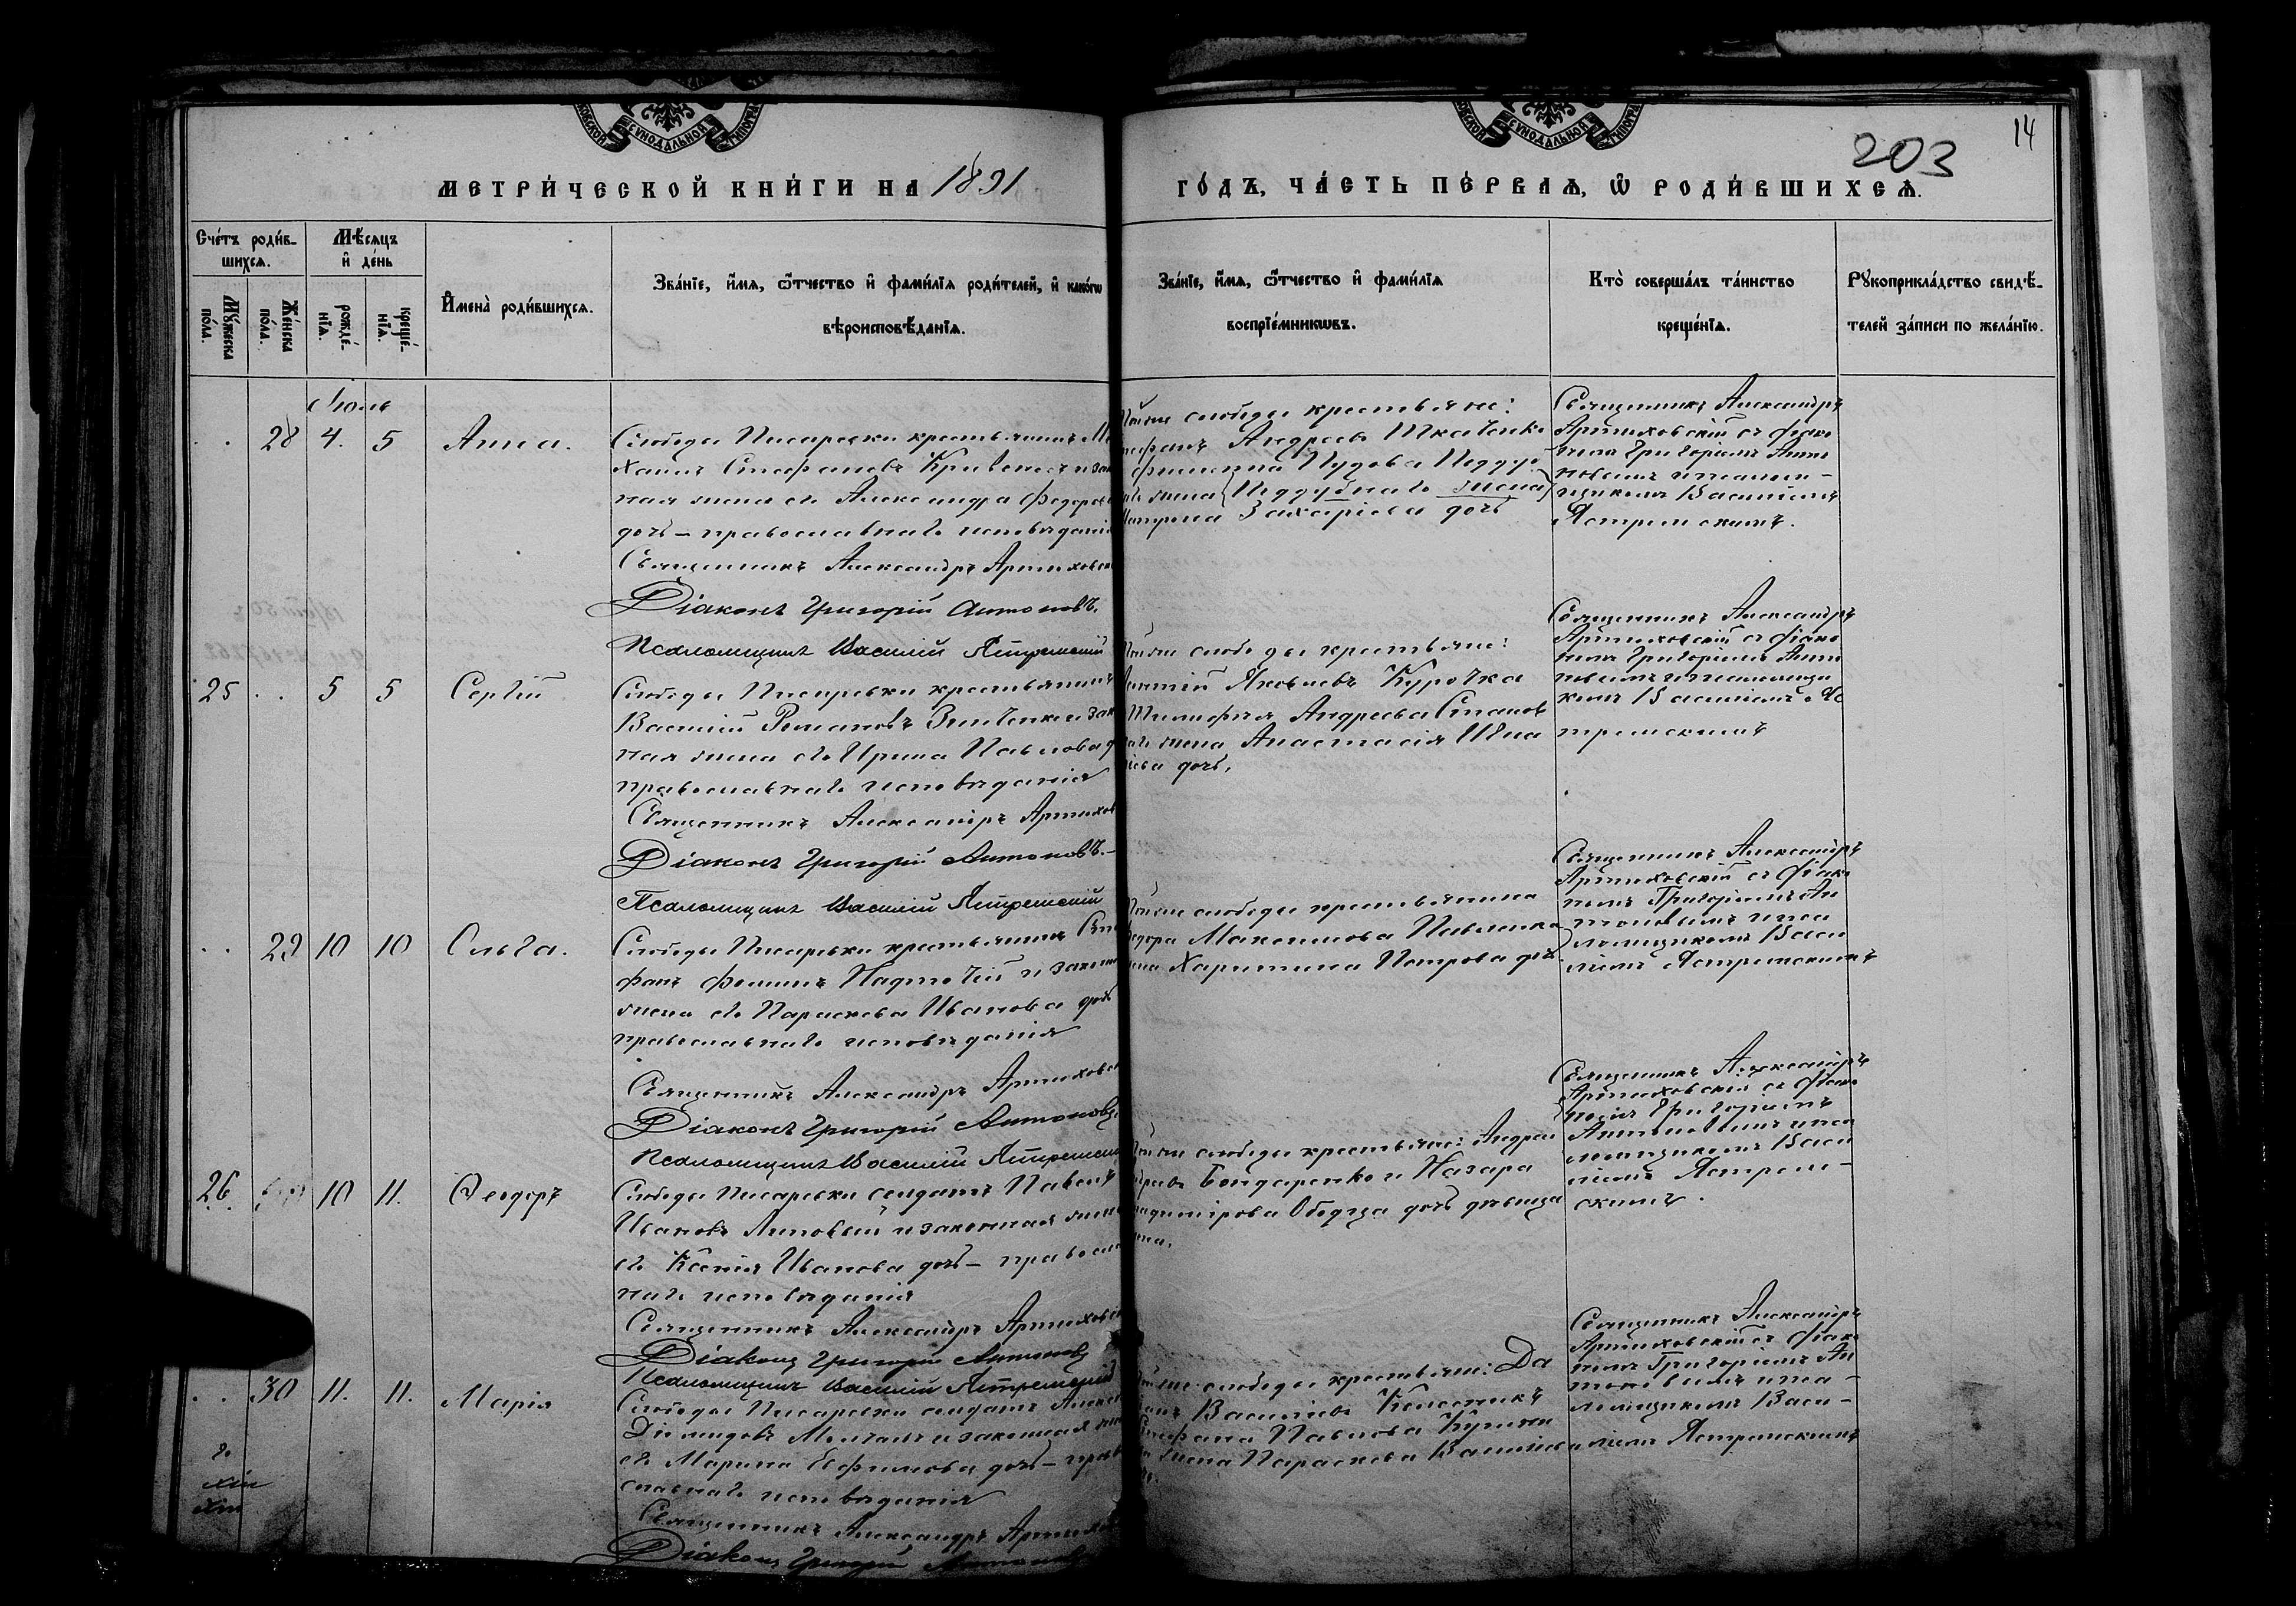 СѴНОДАЛЬНОЙ
СѴНОДАЛЬНОЙ
203
14
МЕТРИ́ЧЕСКОЙ КНИ́ГИ НА 1891
ГО́ДЪ, ЧА́СТЬ ПЕ́РВАѦ, Ѡ РОДИ́ВШИХСѦ.
Сче́тъ роди́в-
шихсѧ.
Мꙋ́жеска
по́ла.
Же́нска
по́ла.
Мѣ́сѧцъ
и҆ де́нь
рожде́-
нїѧ.
креще́-
нїѧ.
И҆мена̀ роди́вшихсѧ.
Зва́нїе, и҆́мѧ, ѻ҆́тчество и҆ фами́лїѧ роди́телей, и҆ како́гѡ
вѣроисповѣ́данїѧ.
Зва́нїе, и҆́мѧ, ѻ҆́тчество и҆ фами́лїѧ
воспрїе́мникѡвъ.
Кто̀ соверша́лъ та́инство
креще́нїѧ.
Рꙋкоприкла́дство свидѣ́-
телей за́писи по жела́нїю.
Іюль
28 4. 5 Анна.
Слободы Писаревки крестьянинъ Ми
хаилъ Стефановъ Кривенко и закон
ная жена его Александра Федорова
дочь – православнаго исповѣданія
Священникъ Александръ Артюховск
Діаконъ Григорій Антоновъ.
Псаломщикъ Василій Ястремскій
слободы крестьяне:
Андреевъ Ткаченко
Пудова Поддуб
жена (Поддубнаго жена)
Захаріева дочь
Священникъ Александръ
Артюховскій съ діако
номъ Григоріемъ Анто
новымъ и псалом-
щикомъ Василіемъ
Ястремскимъ.
25 5 5 Сергій
Слободы Писаревки крестьянинъ
Василій Романовъ Зинченко и зак
ная жена его Ирина Павлова д
православнаго исповѣданія
Священникъ Александръ Артюхов
Діаконъ Григорій Антоновъ.–
Псаломщикъ Василій Ястремскій
слободы крестьяне:
Яковлевъ Курочка
Андреева
жена Анастасія
дочь,
Священникъ Александръ
Артюховскій съ діако
номъ Григоріемъ Анто
новымъ и псаломщи
комъ Василіемъ Яс
тремскимъ
29 10 10 Ольга.
Слободы Писаревки крестьянинъ Сте
фанъ Фоминъ Надточій и законн
жена его Параскева Иванова дочь
православнаго исповѣданія
Священникъ Александръ Артюховск
Діаконъ Григорій Антоновъ
Псаломщикъ Василій Ястремскій
слободы крестьянина
Максимова Павленка
Харитина Петрова дочь
Священникъ Александръ
Артюховскій съ діако
номъ Григоріемъ Ан
тоновымъ и пса
ломщикомъ Васи
ліемъ Ястремскимъ
26. 10 11. Ѳеодоръ
Слободы Писаревки солдатъ Павелъ
Ивановъ Липовый и законная жена
его Ксенія Иванова дочь – правосла
наго исповѣданія
Священникъ Александръ Артюховск
Діаконъ Григорій Антоновъ
Псаломщикъ Василій Ястремскій
слободы крестьяне: Андрей
Бондаренко и Назара
дочь дѣвица
Священникъ Александръ
Артюховскій съ діако
номъ Григоріемъ
Антоновымъ и пса
ломщикомъ Васи
ліемъ Ястрем-
скимъ.
30 11. 11. Марія
Слободы Писаревки солдатъ
Діомидовъ и законная жена
его Марина Евфимова дочь – прав
славнаго исповѣданія
Священникъ Александръ Артюхов
Діаконъ Григорій Антоновъ
слободы крестьяне: Да
Васильевъ Колесникъ
Павлова
жена Параскева Василіева
Священникъ Александръ
Артюховскій съ діако
номъ Григоріемъ Ан
тоновымъ и пса-
ломщикомъ Васи-
ліемъ Ястремскимъ